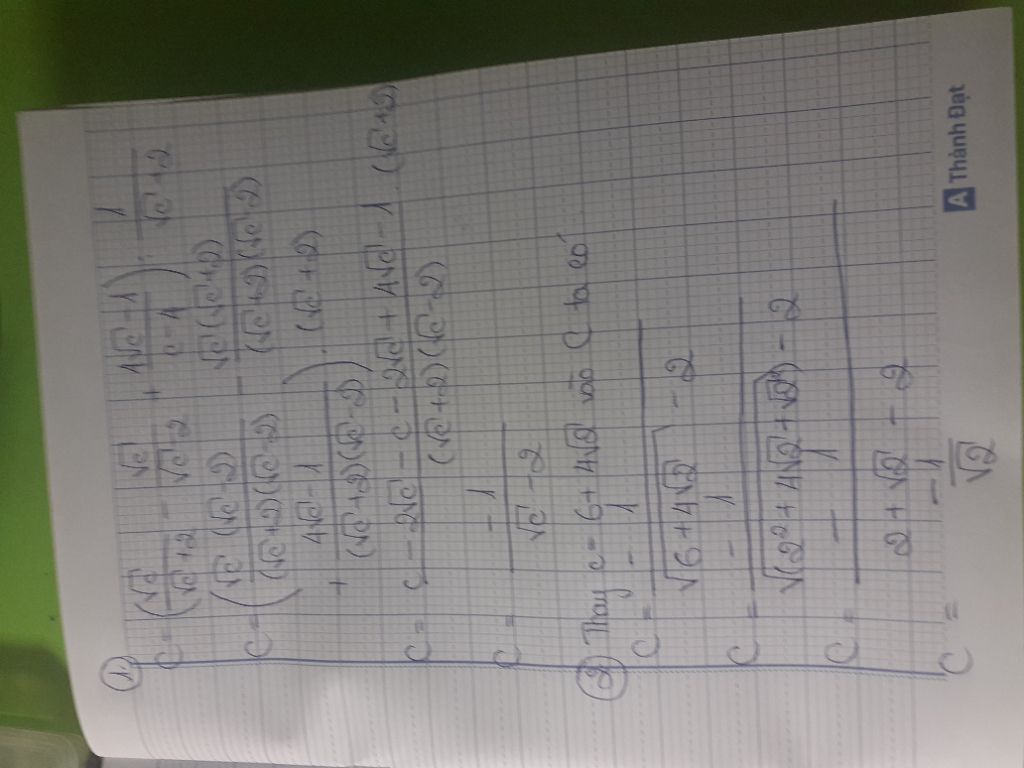 ① C = (√c/(√c+2) - √c/(√c-2) + (4√c-1)/(c-4)) : 1/(√c+2)
C = (√c(√c-2)/((√c+2)(√c-2)) - √c(√c+2)/((√c+2)(√c-2))
+ (4√c-1)/((√c+2)(√c-2))) . (√c+2)
C = (c-2√c-c-2√c+4√c-1)/((√c+2)(√c-2)) . (√c+2)
C = -1/(√c-2)
② Thay c = 6+4√2 vào C ta có
C = -1/(√(6+4√2) -2)
C = -1/(√(2²+4√2+√2²) -2)
C = -1/(2+√2-2)
C = -1/√2
A Thành Đạt